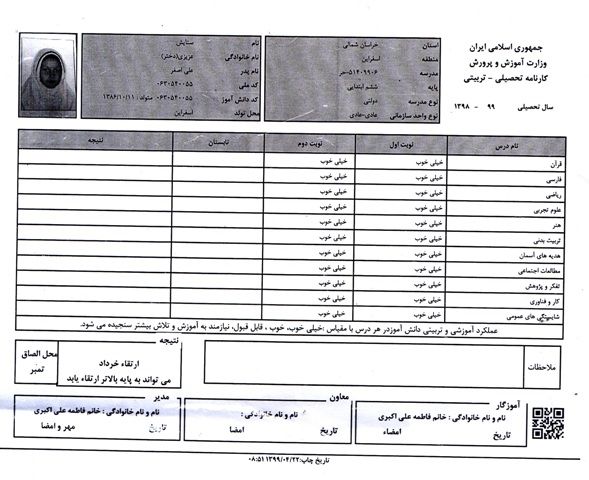 جمهوری اسلامی ایران
وزارت آموزش و پرورش
کارنامه تحصیلی - تربیتی
سال تحصیلی ۹۹ - ۱۳۹۸
استان خراسان شمالی
منطقه اسفراین
مدرسه ۵۱۴۰۹۹۰۶-حر
پایه ششم ابتدایی
نوع مدرسه دولتی
نوع واحد سازمانی عادی-عادی
نام ستایش
نام خانوادگی عزیزی(دختر)
نام پدر علی اصغر
کد ملی ۰۶۳۰۵۴۰۰۵۵
کد دانش آموز ۰۶۳۰۵۴۰۰۵۵ متولد : ۱۳۸۶/۱۰/۱۱
محل تولد اسفراین
نام درس نوبت اول نوبت دوم تابستان نتیجه
قرآن خیلی خوب خیلی خوب
فارسی خیلی خوب خیلی خوب
ریاضی خیلی خوب خیلی خوب
علوم تجربی خیلی خوب خیلی خوب
هنر خیلی خوب خیلی خوب
تربیت بدنی خیلی خوب خیلی خوب
هدیه های آسمان خیلی خوب خیلی خوب
مطالعات اجتماعی خیلی خوب خیلی خوب
تفکر و پژوهش خیلی خوب خیلی خوب
کار و فناوری خیلی خوب خیلی خوب
شایستگی های عمومی خیلی خوب خیلی خوب
عملکرد آموزشی و تربیتی دانش آموزدر هر درس با مقیاس :خیلی خوب، خوب ، قابل قبول، نیازمند به آموزش و تلاش بیشتر سنجیده می شود.
ملاحظات
نتیجه
ارتقاء خرداد
می تواند به پایه بالاتر ارتقاء یابد
محل الصاق
تمبر
آموزگار
نام و نام خانوادگی : خانم فاطمه علی اکبری
تاریخ امضاء
معاون
نام و نام خانوادگی :
تاریخ امضا
مدیر
نام و نام خانوادگی : خانم فاطمه علی اکبری
تاریخ مهر و امضا
تاریخ چاپ:۱۳۹۹/۰۴/۲۲ ۰۸:۵۱